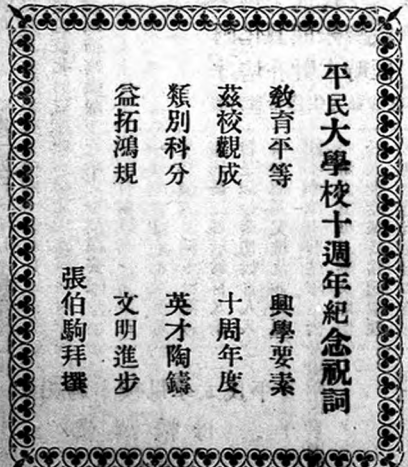 平民大學校十週年紀念祝詞
教育平等 興學要素
茲校觀成 十周年度
類別科分 英才陶鑄
益拓鴻規 文明進步
張伯駒拜撰